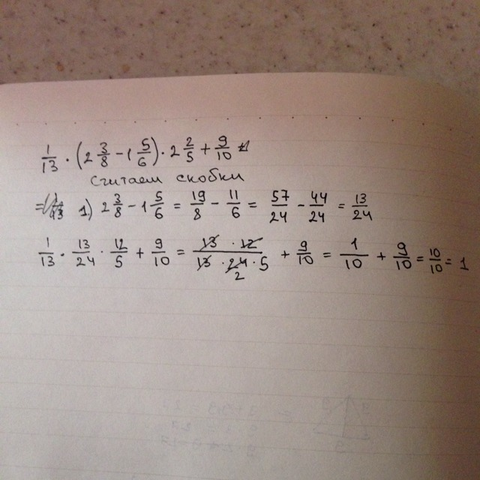 1/13 · (2 3/8 - 1 5/6) · 2 2/5 + 9/10
Считаем скобки
= 1) 2 3/8 - 1 5/6 = 19/8 - 11/6 = 57/24 - 44/24 = 13/24
1/13 · 13/24 · 12/5 + 9/10 = 13 · 12/13 · 24 · 5 + 9/10 = 1/10 + 9/10 = 10/10 = 1
2